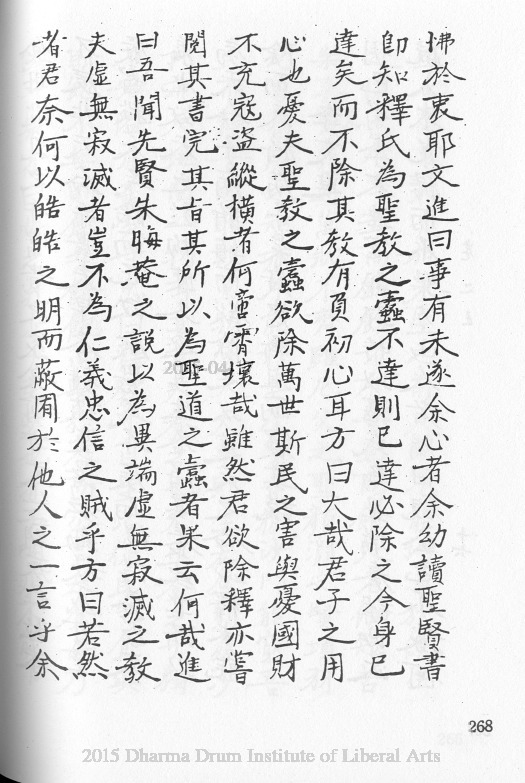 怫於衷耶文進曰事有未遂余心者余幼讀聖賢書
即知釋氏為聖教之蠧不達則已達必除之今身已
達矣而不除其教有負初心耳方曰大哉君子之用
心也憂夫聖教之蠧欲除萬世斯民之害與憂國財
不充寇盗縱橫者何啻霄壤哉雖然君欲除釋亦嘗
閱其書完其旨其所以為聖道之蠧者果云何哉進
曰吾聞先賢朱晦菴之說以為異端虛無寂滅之教
夫虛無寂滅者豈不為仁義忠信之賊乎方曰若然
者君奈何以皓皓之明而蔽囿於他人之一言乎余
268
2015 Dharma Drum Institute of Liberal Arts